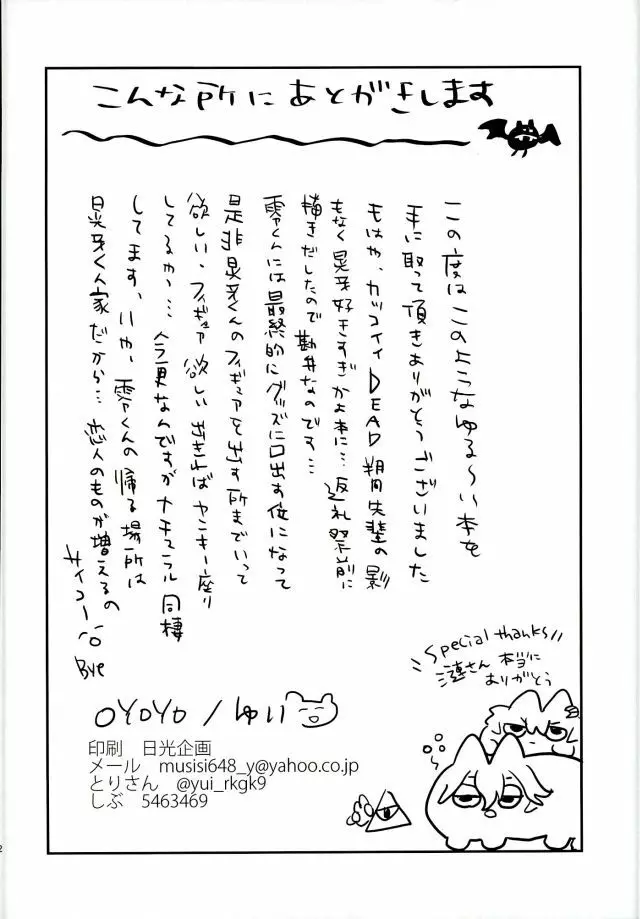 こんな所にあとがきします
この度はこのようなゆる〜い本を
手に取って頂きありがとうございました
もはや、カッコイイDEAD朔間先輩の影
もなく晃牙好きすぎかよ本に…返礼祭前に
描きだしたので勘弁なのです…
零くんには最終的にグッズに口出す位になって
是非晃牙くんのフィギュアを出す所までいって
欲しい、フィギュア欲しい 出きればヤンキー座り
してるやつ…今更なんですがナチュラル同棲
してます、いや、零くんの帰る場所は
晃牙くん家だから…恋人のものが増えるの
サイコー!!
Bye
Special thanks!!
さん 本当に
ありがとう
OYOYO/ゆい
印刷 日光企画
メール musisi648_y@yahoo.co.jp
とりさん @yui_rkgk9
しぶ 5463469
2